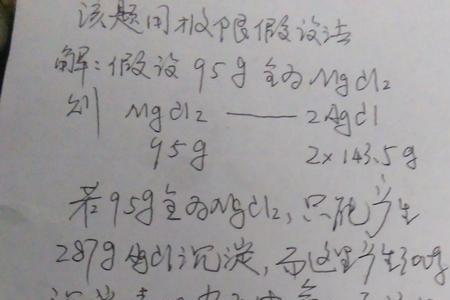 该题用极限假设法
解：假设95g全为MgCl2
则 MgCl2 —— 2AgCl
95g 2×143.5g
若95g全为MgCl2，只能产生
287g AgCl沉淀，而这里产生300g